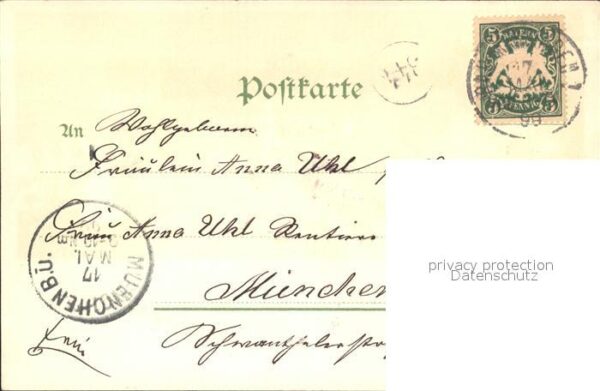 BAYERN
5 5
PFENNIG
17
99
44
Postkarte
An Wohlgeboren
Fräulein Anna Uhl
Frau Anna Uhl Rentiers
München
Schwanthalerstr
frei
MUENCHEN B.II.
17
MAI
privacy protection
Datenschutz